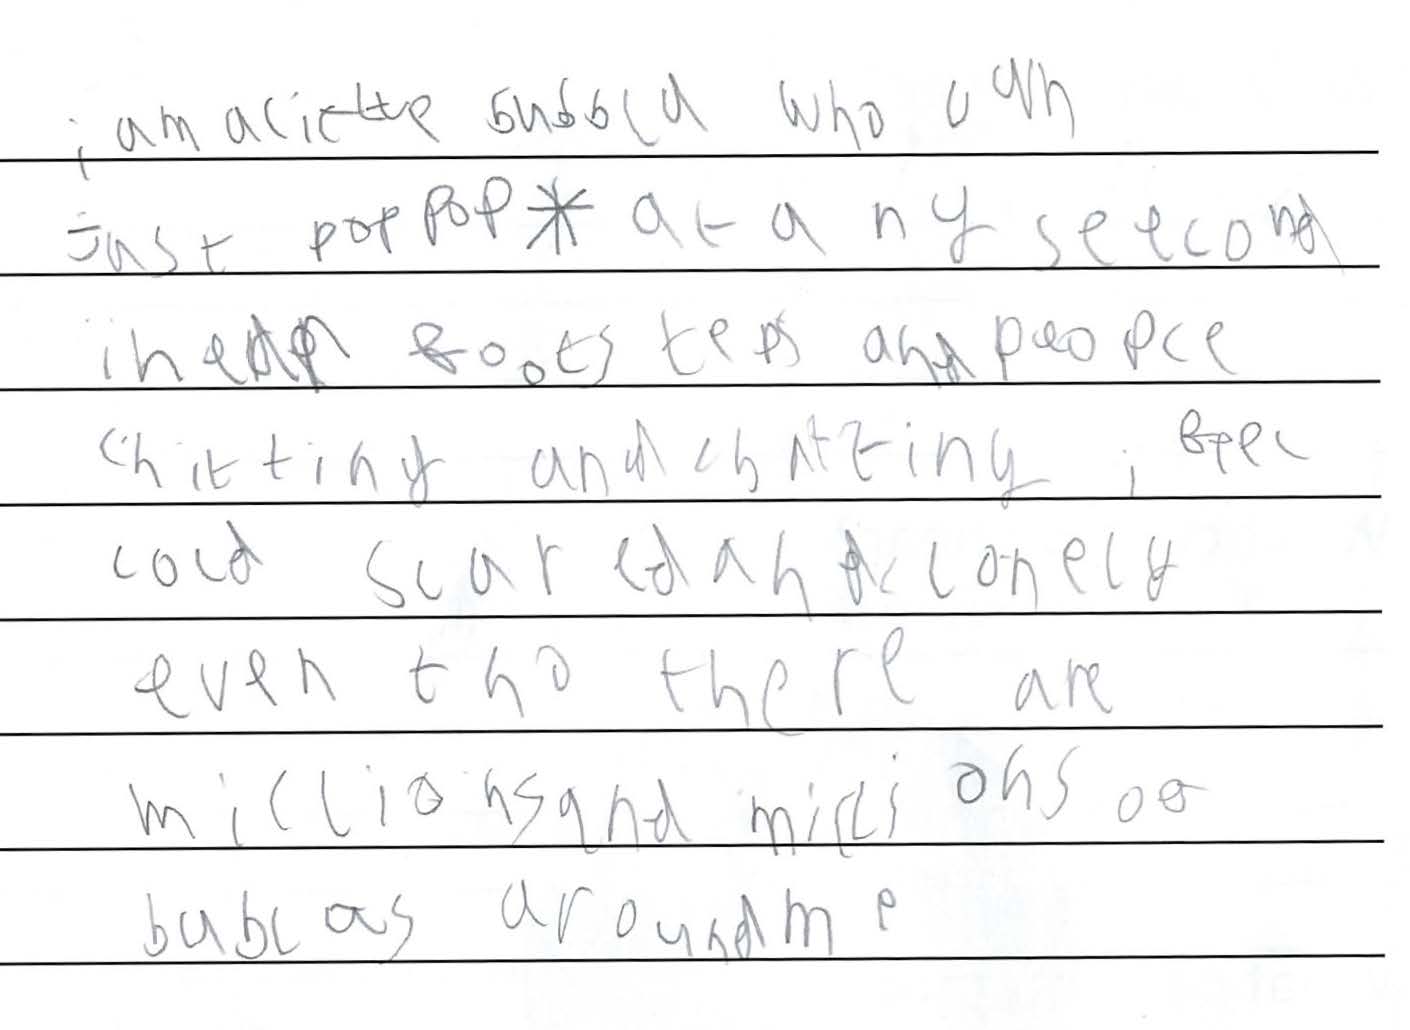 i am a little bubbla who can
just pop pop* at any seecond
i hear footsteps and people
chitting and chatting i feel
cold scared and lonely
even tho there are
millions and millions of
bublas around me